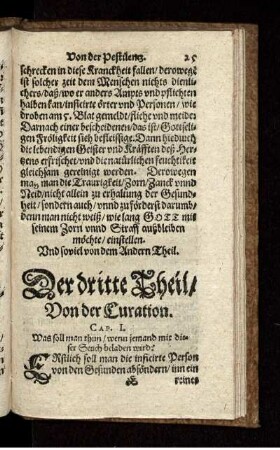 Von der Pestilentz. 25
schrecken in diese Kranckheit fallen / derowegē
ist solcher zeit dem Menschen nichts dienli-
chers / daß / wo er anders Ampts vnd pflichten
halben kan / inficirte örter vnd Personen / wie
droben am 5. Blat gemeldt / fliehe vnd meide:
Darnach einer bescheidenen / das ist / Gottseli-
gen Frölichkeit sich befleissige. Dann hiedurch
die lebendigen Geister vnd Kräfften deß Her-
tzens erfrischet / vnd die natürlichen feuchtikeit
gleichsam gereinigt werden. Derowegen
mag man die Traurigkeit / Zorn / Zanck vnnd
Neid / nicht allein zu erhaltung der Gesund-
heit / sondern auch / vnnd zu förderst darumb /
denn man nicht weiß / wie lang GOTT mit
seinem Zorn vnnd Straff außbleiben
möchte / einstellen.
Vnd soviel von dem Andern Theil.
Der dritte Theil /
Von der Curation.
CAP. I.
Was soll man thun / wenn jemand mit die-
ser Seuch beladen wird?
ERstlich soll man die inficirte Person
von den Gesunden absöndern / inn ein
reines